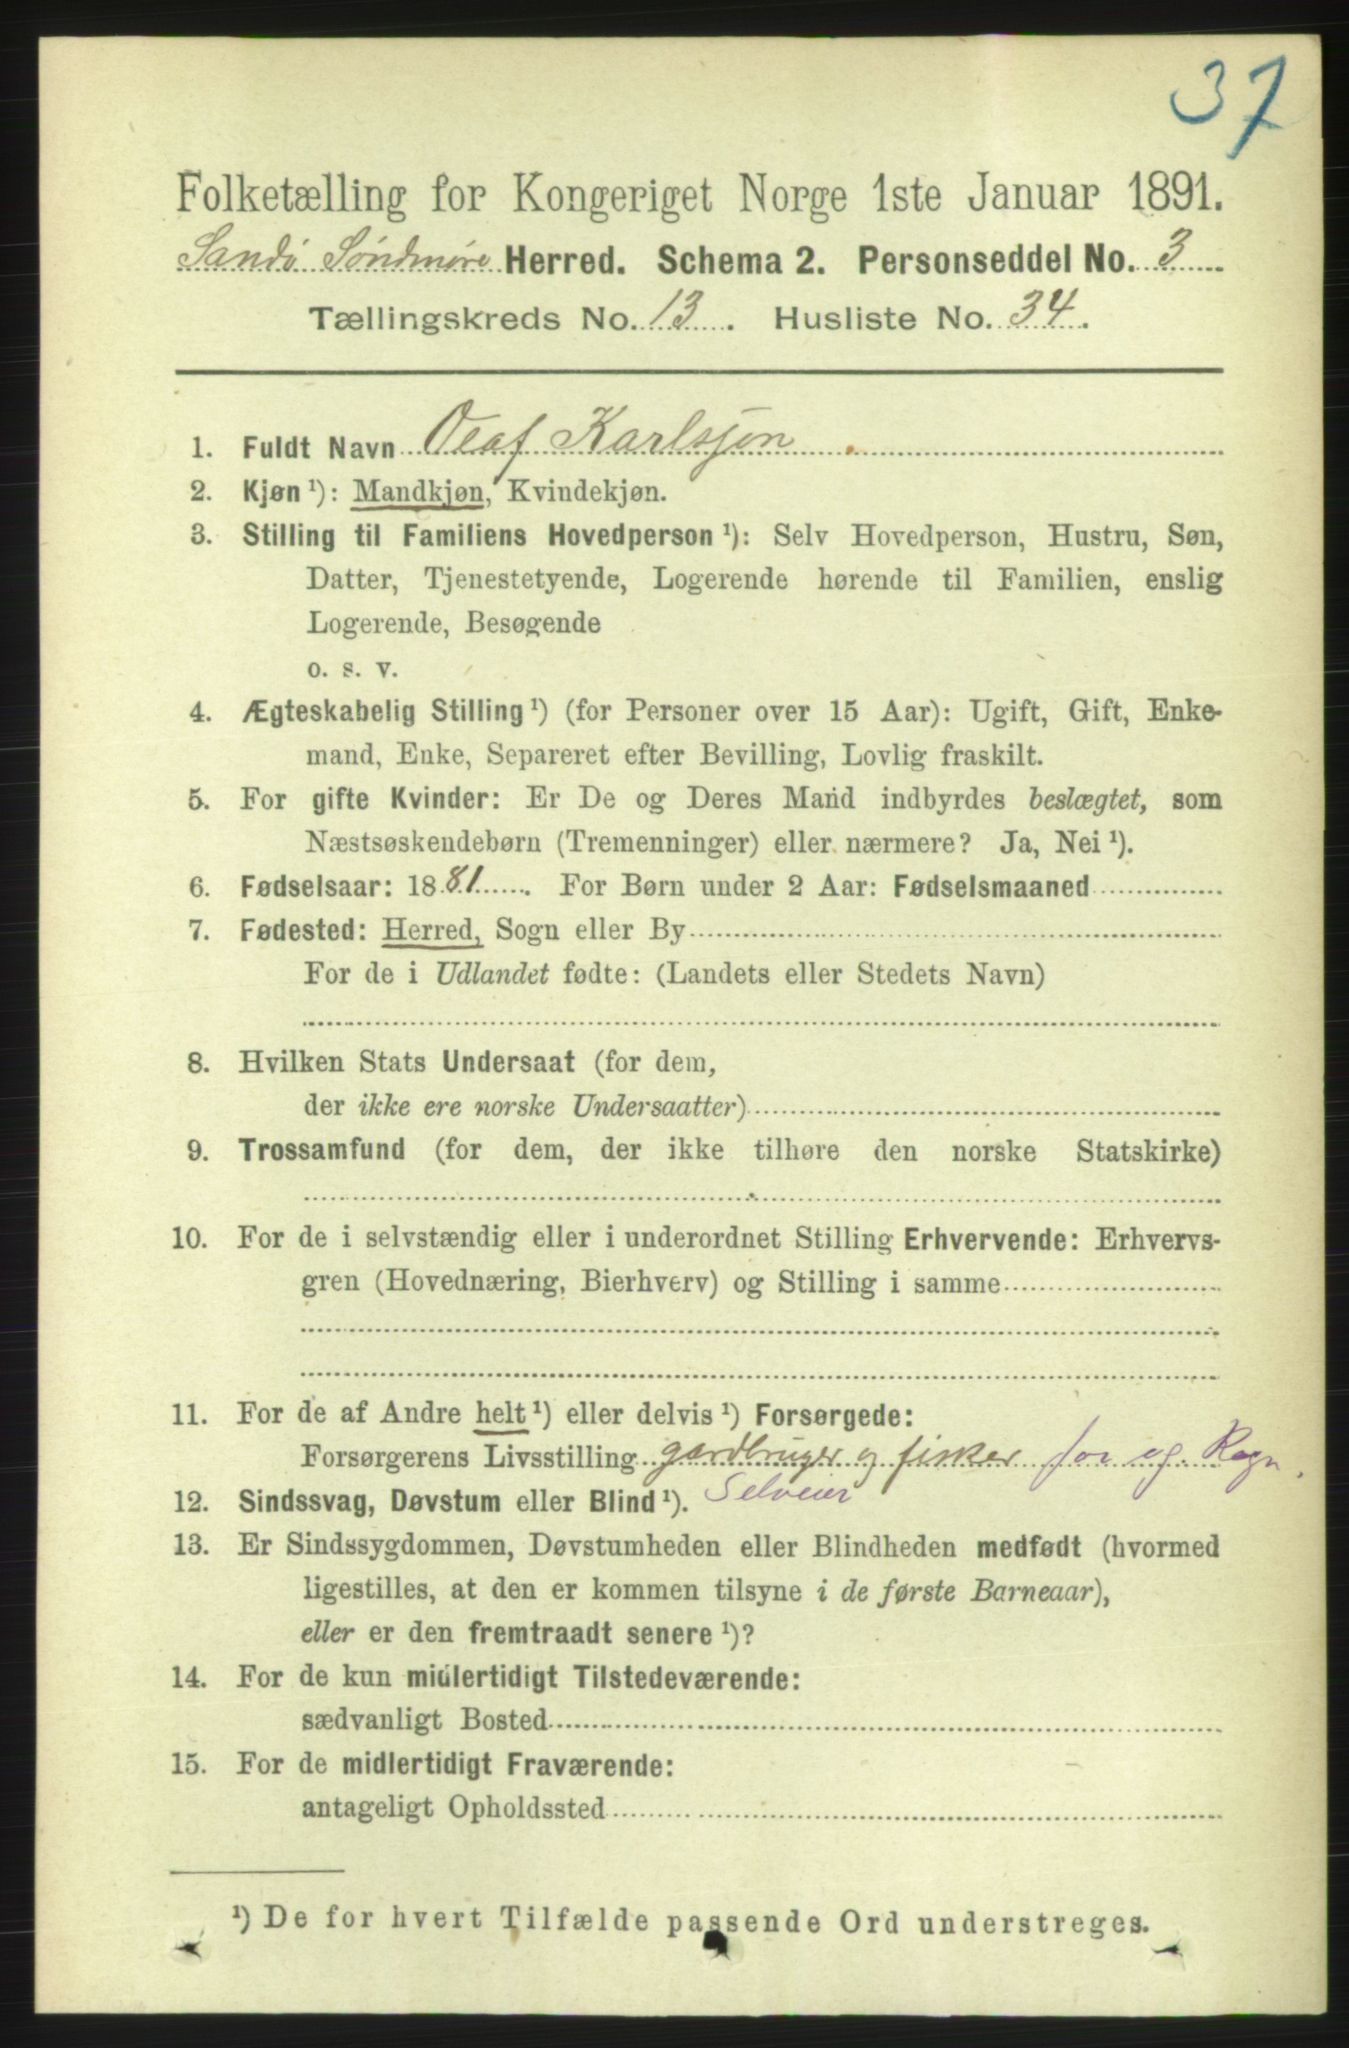 37
Folketælling for Kongeriget Norge 1ste Januar 1891.
Sandö Söndmöre Herred. Schema 2. Personseddel No. 3
Tællingskreds No. 13. Husliste No. 34.
1. Fuldt Navn Olaf Karlsjøn
2. Kjøn ¹): Mandkjøn, Kvindekjøn.
3. Stilling til Familiens Hovedperson ¹): Selv Hovedperson, Hustru, Søn,
Datter, Tjenestetyende, Logerende hørende til Familien, enslig
Logerende, Besøgende
o. s. v.
4. Ægteskabelig Stilling ¹) (for Personer over 15 Aar): Ugift, Gift, Enke-
mand, Enke, Separeret efter Bevilling, Lovlig fraskilt.
5. For gifte Kvinder: Er De og Deres Mand indbyrdes beslægtet, som
Næstsøskendebørn (Tremenninger) eller nærmere? Ja, Nei ¹).
6. Fødselsaar: 1881. For Børn under 2 Aar: Fødselsmaaned
7. Fødested: Herred, Sogn eller By
For de i Udlandet fødte: (Landets eller Stedets Navn)
8. Hvilken Stats Undersaat (for dem,
der ikke ere norske Undersaatter)
9. Trossamfund (for dem, der ikke tilhøre den norske Statskirke)
10. For de i selvstændig eller i underordnet Stilling Erhvervende: Erhvervs-
gren (Hovednæring, Bierhverv) og Stilling i samme
11. For de af Andre helt ¹) eller delvis ¹) Forsørgede:
Forsørgerens Livsstilling gardbruger og fisker for eg. Regn.
Selveier
12. Sindssvag, Døvstum eller Blind ¹).
13. Er Sindssygdommen, Døvstumheden eller Blindheden medfødt (hvormed
ligestilles, at den er kommen tilsyne i de første Barneaar),
eller er den fremtraadt senere ¹)?
14. For de kun midlertidigt Tilstedeværende:
sædvanligt Bosted
15. For de midlertidigt Fraværende:
antageligt Opholdssted
¹) De for hvert Tilfælde passende Ord understreges.